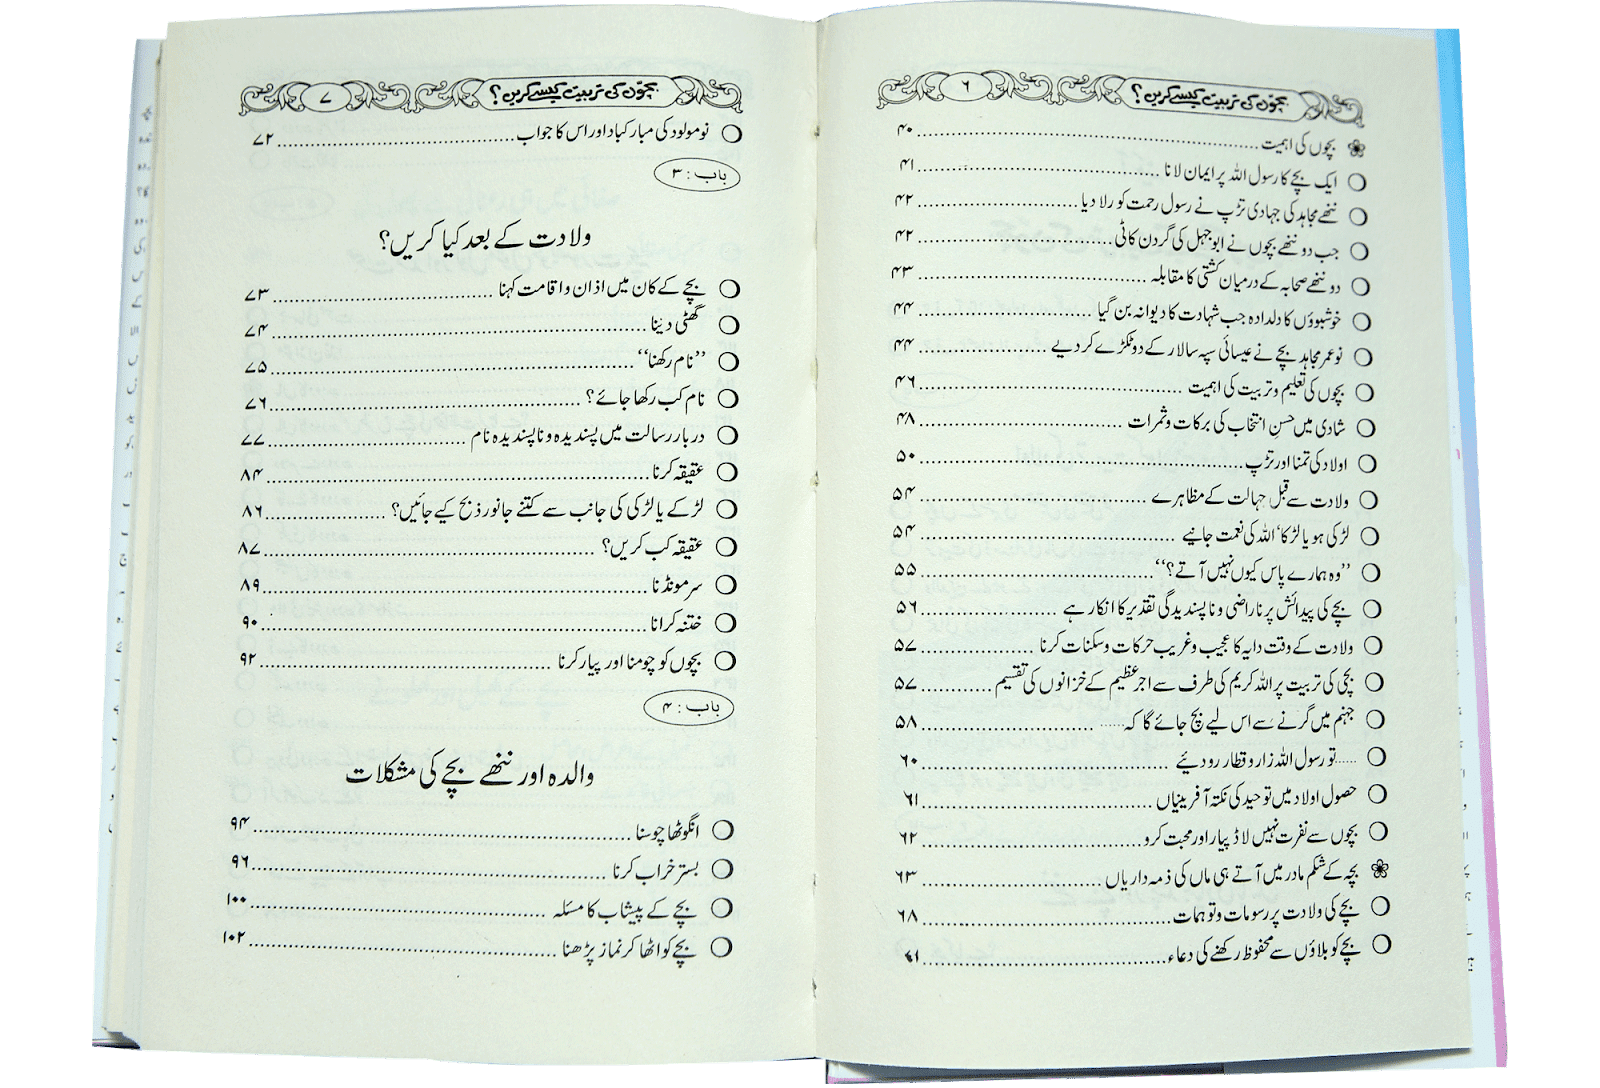 بچوں کی تربیت کیسے کریں؟ ۶
بچوں کی اہمیت ........ ۴۰
ایک بچے کا رسول اللہ پر ایمان لانا ........ ۴۱
ننھے مجاہد کی جہادی تڑپ نے رسول رحمت کو رلا دیا ........ ۴۲
جب دو ننھے بچوں نے ابو جہل کی گردن کاٹی ........ ۴۲
دو ننھے صحابہ کے درمیان کشتی کا مقابلہ ........ ۴۳
خوشبوؤں کا دلدادہ جب شہادت کا دیوانہ بن گیا ........ ۴۴
نوعمر مجاہد بچے نے عیسائی سپہ سالار کے دو ٹکڑے کر دیے ........ ۴۴
بچوں کی تعلیم و تربیت کی اہمیت ........ ۴۶
شادی میں حسنِ انتخاب کی برکات و ثمرات ........ ۴۸
اولاد کی تمنا اور تڑپ ........ ۵۰
ولادت سے قبل جہالت کے مظاہرے ........ ۵۴
لڑکی ہو یا لڑکا' اللہ کی نعمت جانیے ........ ۵۴
”وہ ہمارے پاس کیوں نہیں آتے؟“ ........ ۵۵
بچے کی پیدائش پر ناراضی و ناپسندیدگی تقدیر کا انکار ہے ........ ۵۶
ولادت کے وقت دایہ کا عجیب و غریب حرکات و سکنات کرنا ........ ۵۷
بچی کی تربیت پر اللہ کریم کی طرف سے اجر عظیم کے خزانوں کی تقسیم ........ ۵۷
جہنم میں گرنے سے اس لیے بچ جائے گا کہ ........ ۵۸
...... تو رسول اللہ زار و قطار رو دیئے ........ ۶۰
حصول اولاد میں توحید کی نکتہ آفرینیاں ........ ۶۱
بچوں سے نفرت نہیں لاڈ پیار اور محبت کرو ........ ۶۲
بچہ کے شکم مادر میں آتے ہی ماں کی ذمہ داریاں ........ ۶۳
بچے کی ولادت پر رسومات و توہمات ........ ۶۸
بچے کو بلاؤں سے محفوظ رکھنے کی دعاء ........
بچوں کی تربیت کیسے کریں؟ ۷
نومولود کی مبارکباد اور اس کا جواب ........ ۷۲
باب : ۳
ولادت کے بعد کیا کریں؟
بچے کے کان میں اذان و اقامت کہنا ........ ۷۳
گھٹی دینا ........ ۷۴
”نام رکھنا“ ........ ۷۵
نام کب رکھا جائے؟ ........ ۷۶
دربار رسالت میں پسندیدہ و ناپسندیدہ نام ........ ۷۷
عقیقہ کرنا ........ ۸۴
لڑکے یا لڑکی کی جانب سے کتنے جانور ذبح کیے جائیں؟ ........ ۸۶
عقیقہ کب کریں؟ ........ ۸۷
سر مونڈنا ........ ۸۹
ختنہ کرانا ........ ۹۰
بچوں کو چومنا اور پیار کرنا ........ ۹۲
باب : ۴
والدہ اور ننھے بچے کی مشکلات
انگوٹھا چوسنا ........ ۹۴
بستر خراب کرنا ........ ۹۶
بچے کے پیشاب کا مسئلہ ........ ۱۰۰
بچے کو اٹھا کر نماز پڑھنا ........ ۱۰۲